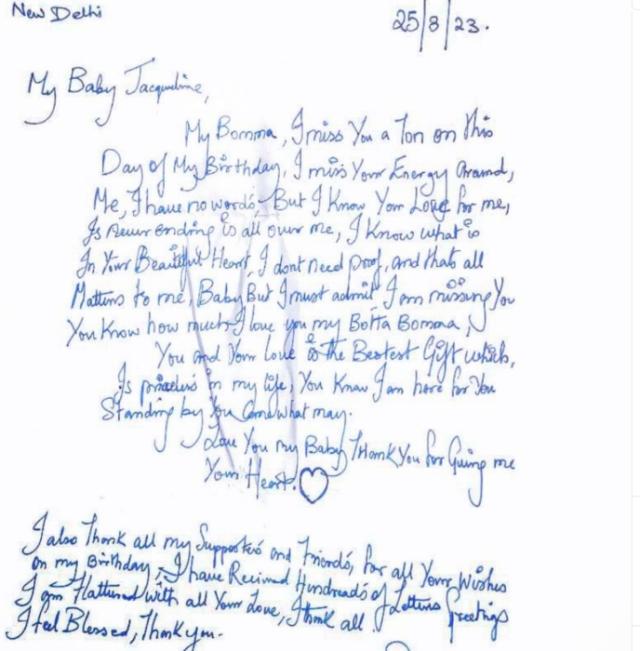 New Delhi
25/3/23.
My Baby Jacqueline,
My Bomma, I miss You a Ton on this
Day of My Birthday, I miss Your Energy Around,
Me, I have no words But I Know Your Love for me,
Is Never ending is all over me, I Know what is
In Your Beautiful Heart, I dont need Proof, and thats all
Matters to me, Baby But I must admit I am missing You
You Know how much I love you my Botta Bomma,
You and Your Love is the Bestest Gift which,
Is priceless in my life, You Know I am here for You
Standing by You Come what may.
Love You my Baby Thank You for Giving me
Your Heart.
I also Thank all my Supporters and Friends, for all Your Wishes
on my Birthday, I have Received Hundreads of Letters Greetings
I am Flattered with all Your Love, I thank all
I feel Blessed, Thank you.